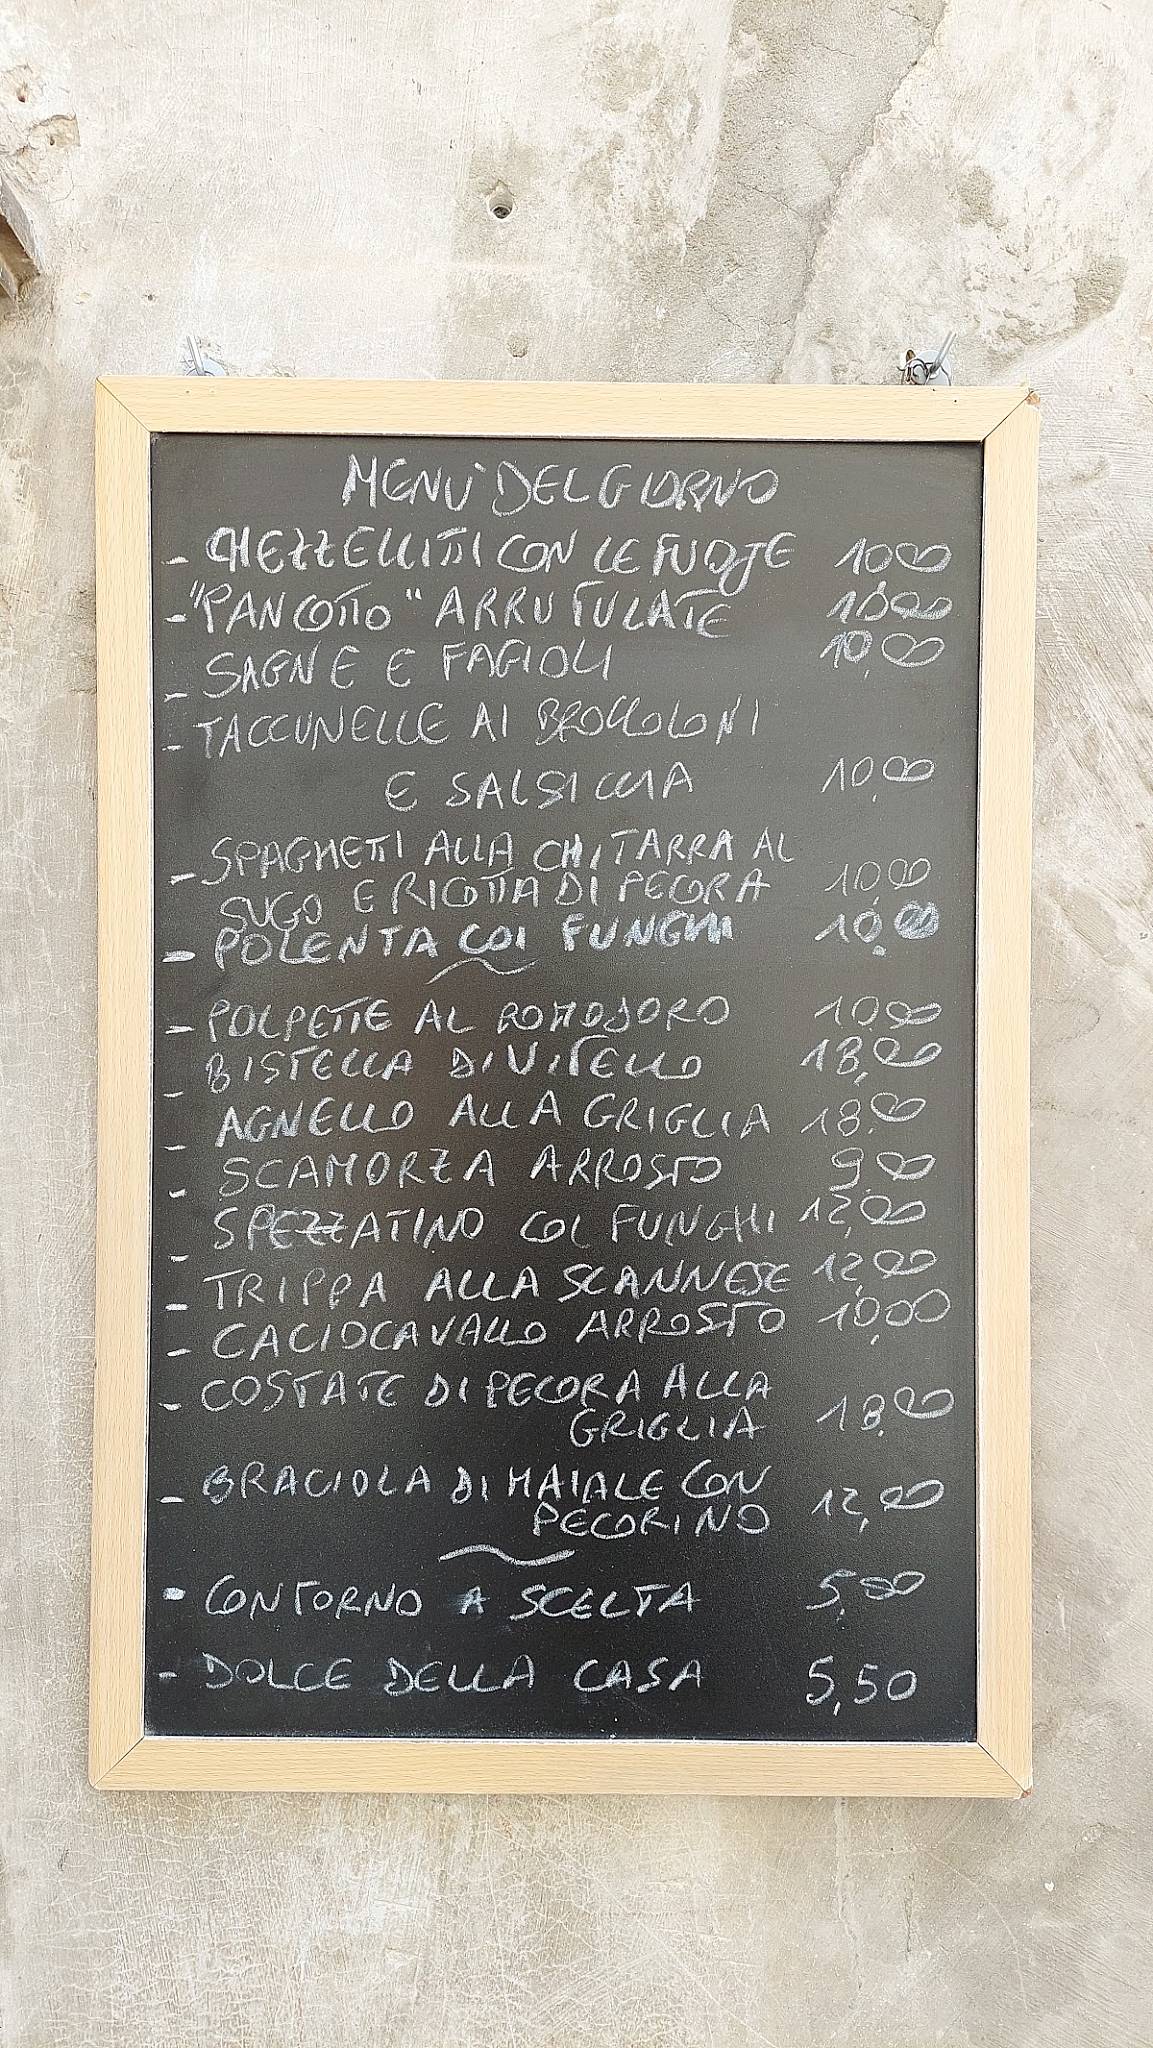 MENÙ DEL GIORNO
- CHEZZELLITTI CON LE FUOJE 10,00
- "PANCOTTO" ARRUTULATE 10,00
- SAGNE E FAGIOLI 10,00
- TACCUNELLE AI BROCCOLONI
E SALSICCIA 10,00
- SPAGHETTI ALLA CHITARRA AL
SUGO E RICOTTA DI PECORA 10,00
- POLENTA COI FUNGHI 10,00
- POLPETTE AL POMODORO 10,00
- BISTECCA DI VITELLO 18,00
- AGNELLO ALLA GRIGLIA 18,00
- SCAMORZA ARROSTO 9,00
- SPEZZATINO COI FUNGHI 12,00
- TRIPPA ALLA SCANNESE 12,00
- CACIOCAVALLO ARROSTO 10,00
- COSTATE DI PECORA ALLA
GRIGLIA 18,00
- BRACIOLA DI MAIALE CON
PECORINO 12,00
- CONTORNO A SCELTA 5,00
- DOLCE DELLA CASA 5,50